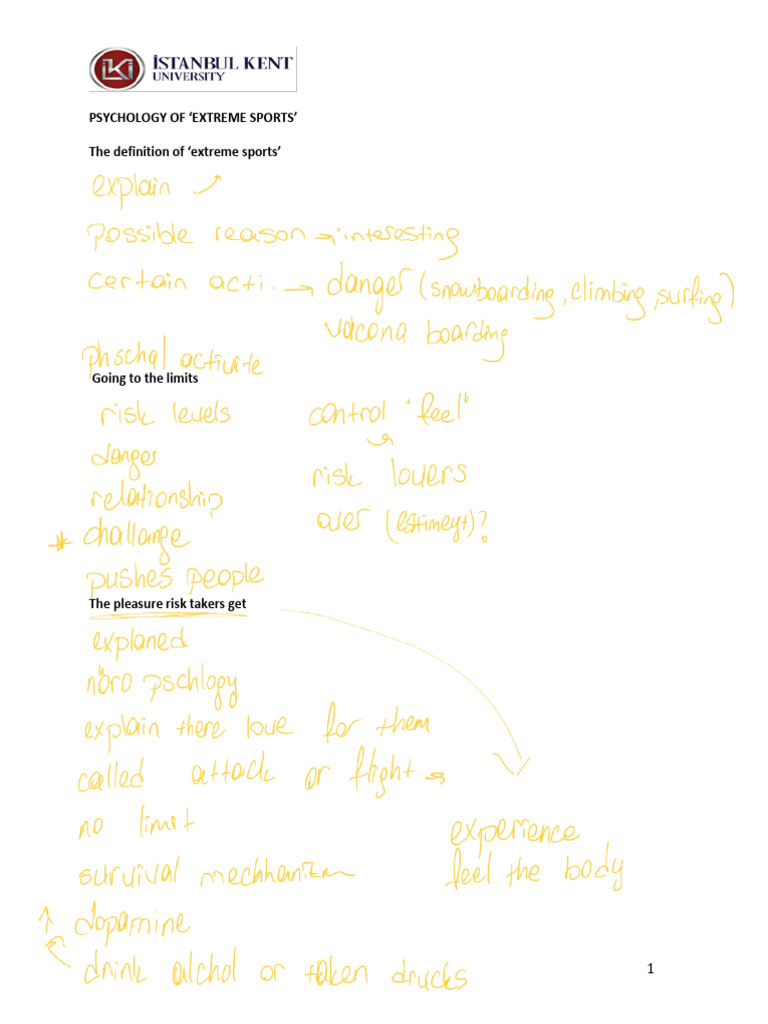 İSTANBUL KENT
UNIVERSITY
PSYCHOLOGY OF ‘EXTREME SPORTS’
The definition of ‘extreme sports’
explain
possible reason → interesting
certain acti. → danger (snowboarding, climbing, surfing)
vacona boarding
phschal activite
Going to the limits
risk levels control "feel"
danger
risk lovers
relationship
over (estimeyt)?
* challange
pushes people
The pleasure risk takers get
explaned
nöro pschlogy
explain there love for them
called attack or flight →
no limit
experience
survival mechhanizm
feel the body
↑ dopamine
drink alchol or taken drucks
1